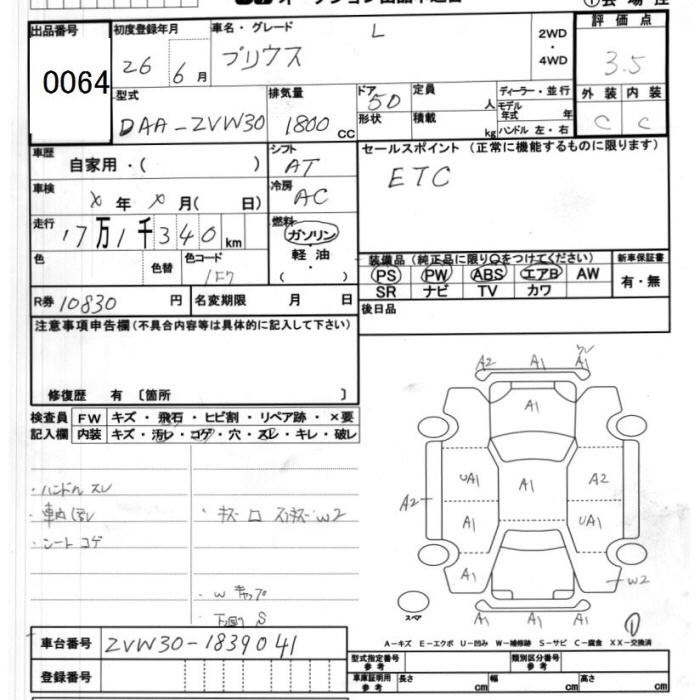 出品番号 0064
初度登録年月 26 6月
車名・グレード プリウス L
2WD・4WD
評価点 3.5
外装 C 内装 C
型式 DAA-ZVW30
排気量 1800 CC
ドア 5D
形状
定員 人
積載 kg
ディーラー・並行
モデル年式 年
ハンドル 左・右
車歴 自家用・( )
シフト AT
セールスポイント (正常に機能するものに限ります)
ETC
車検 X年X月( 日)
冷房 AC
走行 17万1千340km
燃料 ガソリン・軽油・( )
色 色替 色コード 1F7
装備品 (純正品に限り○をつけてください)
新車保証書 有・無
PS PW ABS エアB AW
SR ナビ TV カワ
R券 10830円
名変期限 月 日
後日品
注意事項申告欄(不具合内容等は具体的に記入して下さい)
修復歴 有 〔箇所 〕
検査員記入欄
FW キズ・飛石・ヒビ割・リペア跡・×要
内装 キズ・汚レ・コゲ・穴・スレ・キレ・破レ
・ハンドル スレ
・シート コゲ
W2
A2 A1 A1
A1
UA1 A1 A2
A2
A1 UA1
A1
W2
A1 A1 A1
スペア
①
A-キズ E-エクボ U-凹み W-補修跡 S-サビ C-腐食 XX-交換済
車台番号 ZVW30-1839041
登録番号
型式指定番号 参考
類別区分番号 参考
車庫証明用 参考 長さ cm 幅 cm 高さ cm